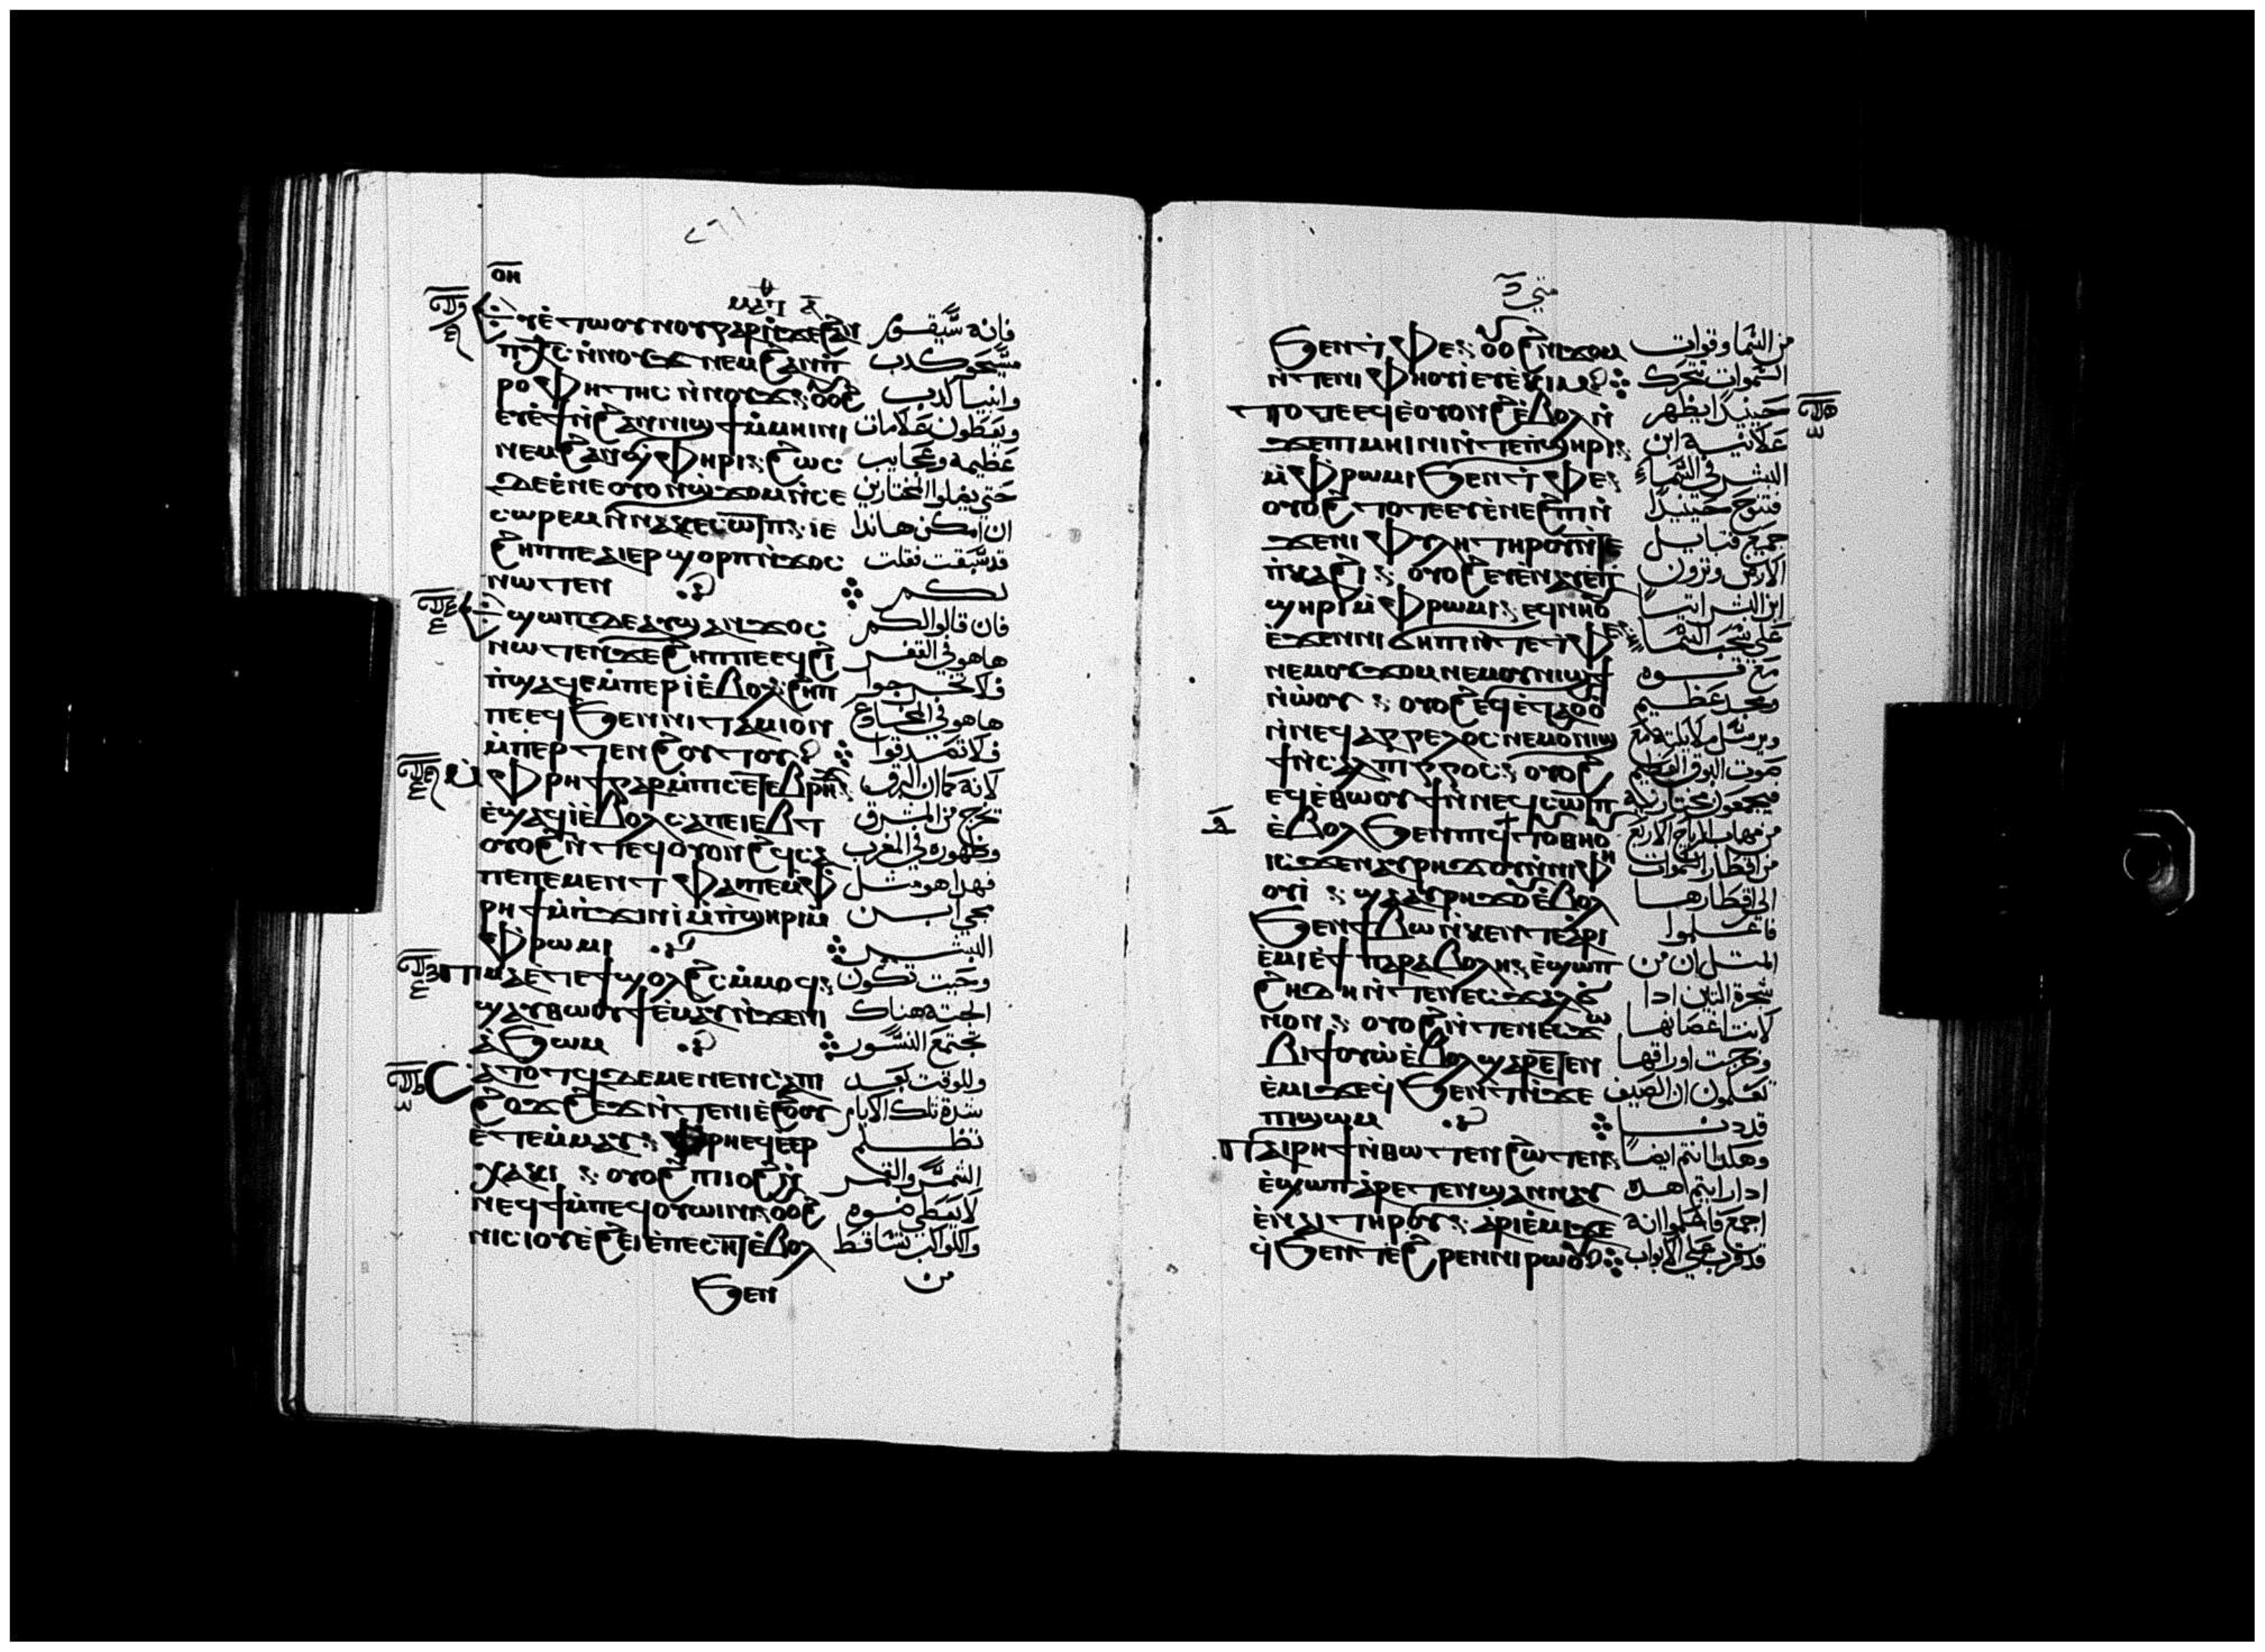 ⲟⲏ
ⲉⲩⲉ̀ⲧⲱⲟⲩⲛⲟⲩⲅⲁⲣⲛ̀ϫⲉϩⲁⲛ فانه سيقوم
ⲡⲭ̅ⲥ̅ ⲛ̀ⲛⲟⲩϫ ⲛⲉⲙϩⲁⲛⲡ̀ مسيحو كدب
ⲣⲟⲫⲏⲧⲏⲥ ⲛ̀ⲛⲟⲩϫ ⲟⲩⲟϩ وانبيا كدب
ⲉⲩⲉ̀ϯⲛ̀ϩⲁⲛⲛⲓϣϯⲙ̀ⲙⲏⲓⲛⲓ ويعطون علامات
ⲛⲉⲙϩⲁⲛϣ̀ⲫⲏⲣⲓ ϩⲱⲥ عظيمه وعجايب
ⲇⲉⲉ̀ⲛⲉⲟⲩⲟⲛϣ̀ϫⲟⲙⲛ̀ⲥⲉ حتى يضلوا المختارين
ⲥⲱⲣⲉⲙⲛ̀ⲛⲁⲕⲉⲥⲱⲧⲡ ⲓⲉ ان امكن هاندا
ϩⲏⲡⲡⲉⲁⲓⲉⲣϣⲟⲣⲡⲛ̀ϫⲟⲥ قد سبقت فقلت
ⲛⲱⲧⲉⲛ لكم
ⲉϣⲱⲡⲇⲉⲁⲩϣⲁⲛϫⲟⲥ فان قالوا لكم
ⲛⲱⲧⲉⲛϫⲉϩⲏⲡⲡⲉⲉϥϩⲓ ها هو في القفر
ⲡ̀ϣⲁϥⲉⲙ̀ⲡⲉⲣⲓ̀ⲉ̀ⲃⲟⲗ ϩⲏⲡ فلا تخرجوا
ⲡⲉⲉϥϧⲉⲛⲛⲓⲧⲁⲙⲓⲟⲛ ها هو في المخادع
ⲙ̀ⲡⲉⲣⲧⲉⲛϩⲟⲩⲧⲟⲩ فلا تصدقوا
ⲙ̀ⲫⲣⲏϯⲅⲁⲣⲙ̀ⲡⲓⲥⲉⲧⲉⲃⲣⲏϫ لانه كما ان البرق
ⲉ̀ϣⲁϥⲓ̀ⲉ̀ⲃⲟⲗⲥⲁⲡⲉⲓⲉⲃⲧ يخرج من المشرق
ⲟⲩⲟϩⲛ̀ⲧⲉϥⲟⲩⲟⲛϩϥⲥⲁ وظهوره في المغرب
ⲡⲉⲡⲉⲙⲉⲛⲧ ⲫⲁⲡⲉⲙ̀ⲫ فهدا هو مثل
ⲣⲏϯⲙ̀ⲡ̀ϫⲓⲛⲓ̀ⲙ̀ⲡ̀ϣⲏⲣⲓⲙ̀ مجي ابن
ⲫⲣⲱⲙⲓ البشر
ⲡⲓⲙⲁⲉ̀ⲧⲉϯϣⲟⲗϩⲥⲙ̀ⲙⲟϥ وحيت تكون
ϣⲁⲩⲑⲱⲟⲩϯⲉ̀ⲙⲁⲩⲛ̀ϫⲉⲛⲓ الجته هناك
ⲁ̀ϧⲱⲙ تجتمع النسور
ⲥⲁⲧⲟⲧϥⲇⲉⲙⲉⲛⲉⲛⲥⲁⲡ وللوقت بعد
ϩⲟϫϩⲉϫⲛ̀ⲧⲉⲛⲓⲉ̀ϩⲟⲟⲩ شدة تلك الايام
ⲉ̀ⲧⲉⲙ̀ⲙⲁⲩ ⲫⲣⲏⲉϥⲉⲉⲣ تظلم
ⲭⲁⲕⲓ ⲟⲩⲟϩⲡⲓⲓⲟϩⲛ̀ الشمس والقمر
ⲛⲉϥϯⲙ̀ⲡⲉϥⲟⲩⲱⲓⲛⲓ ⲟⲩⲟϩ لا يعطي ضوه
ⲛⲓⲥⲓⲟⲩⲉ̀ϩⲉⲓⲉ̀ⲡⲉⲥⲏⲧⲉ̀ⲃⲟⲗ والكواكب تتساقط
ϧⲉⲛ من
متي
ϧⲉⲛⲧ̀ⲫⲉ ⲟⲩⲟϩⲛⲓϫⲟⲙ من السما وقوات
ⲛ̀ⲧⲉⲛⲓⲫⲏⲟⲩⲓ̀ⲉⲩⲉ̀ⲕⲓⲙ السموات تتحرك
ⲧⲟⲧⲉⲉϥⲉ̀ⲟⲩⲟⲛϩⲉ̀ⲃⲟⲗⲛ̀ حينيدا يظهر
ϫⲉⲡⲓⲙⲏⲓⲛⲓⲛ̀ⲧⲉⲡ̀ϣⲏⲣⲓ علانية ابن
ⲙ̀ⲫⲣⲱⲙⲓϧⲉⲛⲧ̀ⲫⲉ البشر في السما
ⲟⲩⲟϩⲧⲟⲧⲉⲉⲩⲉ̀ⲛⲉϩⲡⲓⲛ̀ فتنوح حينيدا
ϫⲉⲛⲓⲫⲩⲗⲏⲧⲏⲣⲟⲩⲛ̀ⲧⲉ جميع قبايل
ⲡ̀ⲕⲁϩⲓ ⲟⲩⲟϩⲉⲩⲉ̀ⲛⲁⲩⲉⲡ̀ الارض وترون
ϣⲏⲣⲓⲙ̀ⲫⲣⲱⲙⲓ ⲉϥⲛⲏⲟⲩ ابن البشر اتيا
ⲉ̀ϫⲉⲛⲛⲓϭⲏⲡⲓⲛ̀ⲧⲉⲧ̀ⲫⲉ على سحب السما
ⲛⲉⲙⲟⲩϫⲟⲙⲛⲉⲙⲟⲩⲛⲓϣϯ مع قوه
ⲛ̀ⲱ̀ⲟⲩ ⲟⲩⲟϩⲉϥⲉ̀ⲧⲁⲟⲩⲟ ومجد عظيم
ⲛ̀ⲛⲉϥⲁⲅⲅⲉⲗⲟⲥⲛⲉⲙⲟⲛⲓϣ ويرسل ملايكته مع
ϯⲛ̀ⲥⲁⲗⲡⲓⲅⲅⲟⲥ ⲟⲩⲟϩ صوت البوق العظيم
ⲉϥⲉ̀ⲑⲱⲟⲩϯⲛ̀ⲛⲉϥⲥⲱⲧⲡ فيجمعون مختاريه
ⲉ̀ⲃⲟⲗϧⲉⲛⲡⲓϥⲧⲟⲩⲑⲏⲟⲩ من مهاب الرياح الاربع
ⲓⲥϫⲉⲛⲁⲩⲣⲏϫⲟⲩⲛ̀ⲛⲓⲫⲏ من اقطار السموات
ⲟⲩⲓ̀ ϣⲁⲁⲩⲣⲏϫⲟⲩⲉ̀ⲃⲟⲗ الى اقطارها
ϧⲉⲛϯⲃⲱⲛ̀ⲕⲉⲛⲧⲉⲁⲣⲓ فاعلموا
ⲉ̀ⲙⲓⲉ̀ϯⲡⲁⲣⲁⲃⲟⲗⲏ ⲉ̀ϣⲱⲡ المتل ان من
ϩⲏⲇⲏⲛ̀ⲧⲉⲛⲉⲥϫⲁⲗ شجرة التين ادا
ⲛⲟⲛ ⲟⲩⲟϩⲛ̀ⲧⲉⲛⲉⲥϫⲱ لانت اغصانها
ⲃⲓϯⲟⲩⲱⲉ̀ⲃⲟⲗϣⲁⲣⲉⲧⲉⲛ وخرجت اوراقها
ⲉ̀ⲙⲓϫⲉϥ̀ϧⲉⲛⲧⲛ̀ϫⲉ تعلمون ان الصيف
ⲡⲓϣⲱⲙ قد دنا
ⲡⲁⲓⲣⲏϯⲛ̀ⲑⲱⲧⲉⲛϩⲱⲧⲉⲛ وهكدا انتم ايضا
ⲉ̀ϣⲱⲡⲁ̀ⲣⲉⲧⲉⲛϣⲁⲛⲛⲁⲩ ادا رايتم هده
ⲉ̀ⲛⲁⲓⲧⲏⲣⲟⲩ ⲁ̀ⲣⲓⲉ̀ⲙⲓϫⲉ اجمع فاعلموا انه
ϥ̀ϧⲉⲛⲧⲉ̀ϩⲣⲉⲛⲛⲓⲣⲱⲟⲩ قد قرب على الابواب